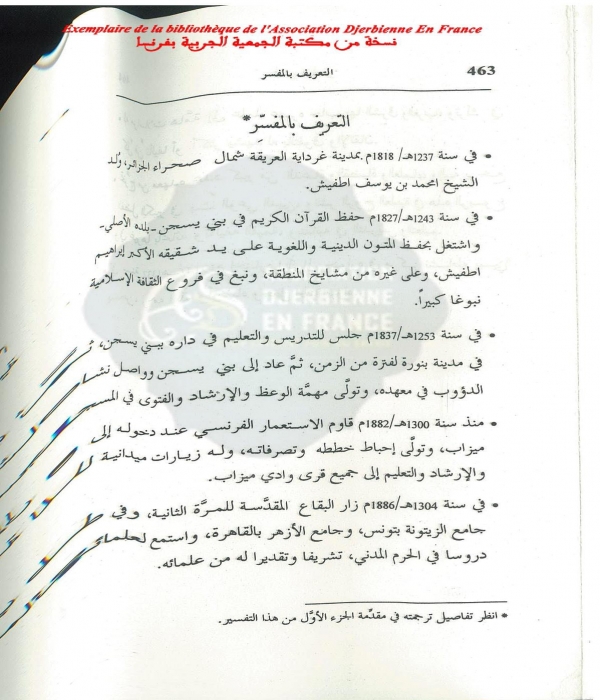 Exemplaire de la bibliothèque de l'Association Djerbienne En France
نسخة من مكتبة الجمعية الجربية بفرنسا
463
التعريف بالمفسر
التعريف بالمفسِّر*
• في سنة 1237هـ/1818م بمدينة غرداية العريقة شمال صحراء الجزائر، وُلد
الشيخ امحمد بن يوسف اطفيش.
• في سنة 1243هـ/1827م حفظ القرآن الكريم في بني يسجن -بلده الأصلي-
واشتغل بحفظ المتون الدينية واللغوية على يد شقيقه الأكبر إبراهيم
اطفيش، وعلى غيره من مشايخ المنطقة، ونبغ في فروع الثقافة الإسلامية
نبوغا كبيراً.
• في سنة 1253هـ/1837م جلس للتدريس والتعليم في داره ببني يسجن،
في مدينة بنورة لفترة من الزمن، ثمَّ عاد إلى بني يسجن وواصل
الدؤوب في معهده، وتولَّى مهمَّة الوعظ والإرشاد والفتوى في
• منذ سنة 1300هـ/1882م قاوم الاستعمار الفرنسي عند دخوله إلى
ميزاب، وتولَّى إحباط خططه وتصرفاته، وله زيارات ميدانية
والإرشاد والتعليم إلى جميع قرى وادي ميزاب.
• في سنة 1304هـ/1886م زار البقاع المقدَّسة للمرَّة الثانية، وفي
جامع الزيتونة بتونس، وجامع الأزهر بالقاهرة، واستمع
دروسا في الحرم المدني، تشريفا وتقديرا له من علمائه.
* انظر تفاصيل ترجمته في مقدِّمة الجزء الأوَّل من هذا التفسير.
DJERBIENNE
EN FRANCE